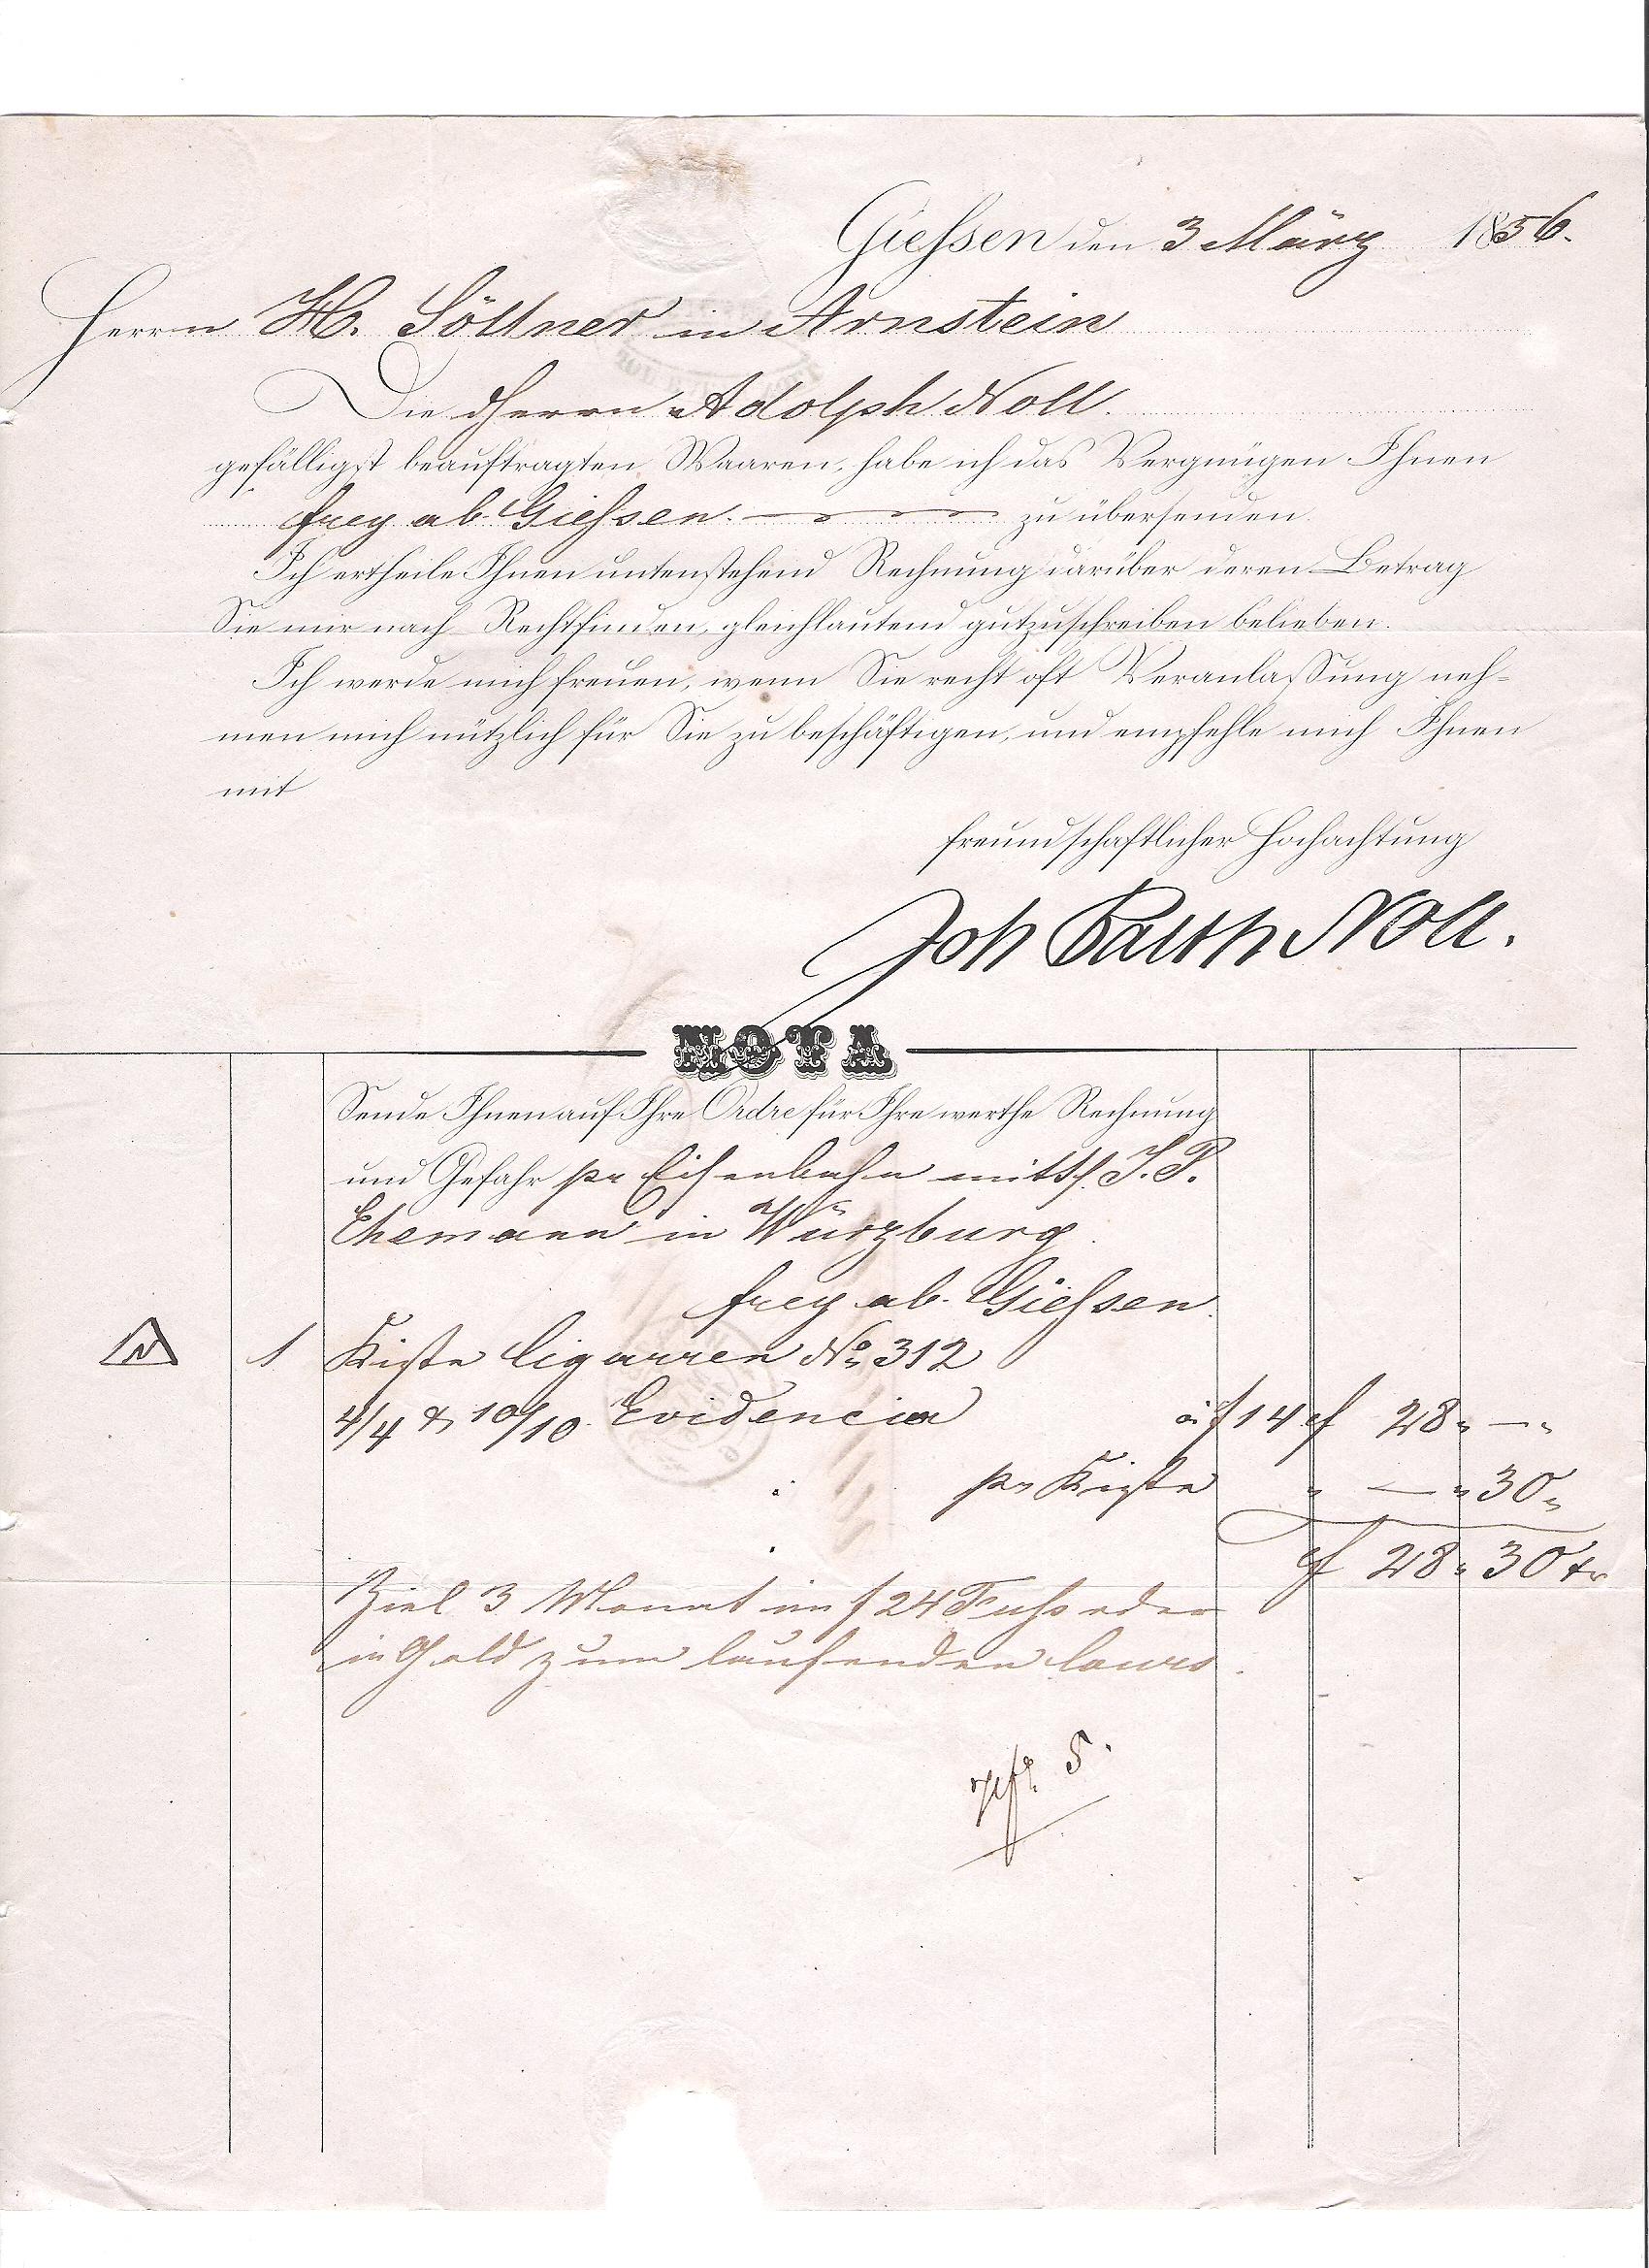 Giessen den 3 März 1856.
Herrn H. Söllner in Arnstein
Die Herrn Adolph Noll.
gefälligst beauftragten Waaren, habe ich das Vergnügen Ihnen
frey ab Giessen. zu übersenden.
Ich ertheile Ihnen untenstehend Rechnung darüber deren Betrag
Sie mir nach Rechtfinden, gleichlautend gutzuschreiben belieben.
Ich werde mich freuen, wenn Sie recht oft Veranlassung neh-
men mich nützlich für Sie zu beschäftigen, und empfehle mich Ihnen
mit
freundschaftlicher Hochachtung
Joh Balth Noll.
NOTA
Sende Ihnen auf Ihre Ordre für Ihre werthe Rechnung
und Gefahr pr Eisenbahn mitts. J. P.
Ehemann in Würzburg.
frey ab Giessen.
N 1 Kiste Cigarren No. 312
4/4 & 10/10 Evidencia à f 14 f 28 " — "
pr Kiste " — " 30 "
f 28 " 30 kr
Ziel 3 Monat im f 24 Fuss oder
in Gold zum laufenden Cours.
5.